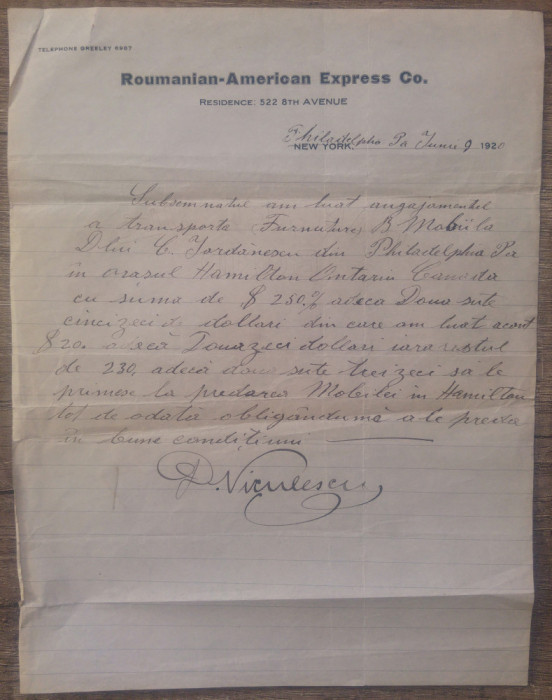 TELEPHONE GREELEY 6967
Roumanian-American Express Co.
RESIDENCE: 522 8TH AVENUE
Philadelpha Pa Juni 9
NEW YORK, 192
Subsemnatul am luat angajamentul
a transporta (Furnuture) Mobiila
Dlui C. Jordănescu din Philadelpha Pa
in orasul Hamilton Ontario Canada
cu suma de $ 250. adeca Doua sute
cincizeci de dollari din care am luat acont
$ 20. adecă Douazeci dollari iara restul
de 230, adecă doua sute treizeci sa le
primesc la predarea Mobilei in Hamilton
tot de odată obligăndumă a le preda
in bune condițiuni
D. Niculescu